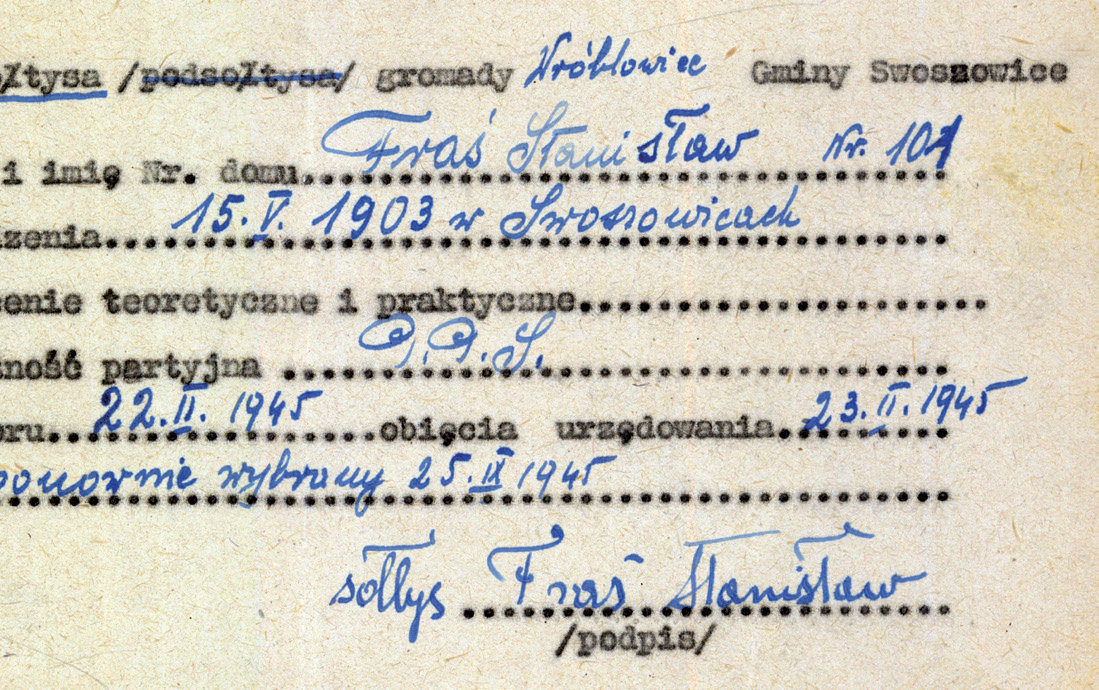 ołtysa /podsołtysa/ gromady Wróblowiec Gminy Swoszowice
i imię Nr. domu.......Fraś Stanisław Nr. 101
zenia.......15.V. 1903 w Swoszowicach
cenie teoretyczne i praktyczne.......
ność partyjna .......P.P.S.
oru.......22.II. 1945.......obięcia urzędowania.......23.II.1945
ponownie wybrany 25.IX 1945
sołtys Fraś Stanisław
/podpis/